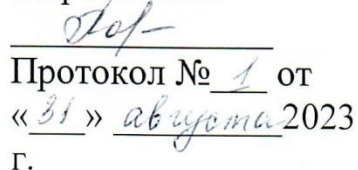 Протокол № 1 от
«31» августа 2023
г.